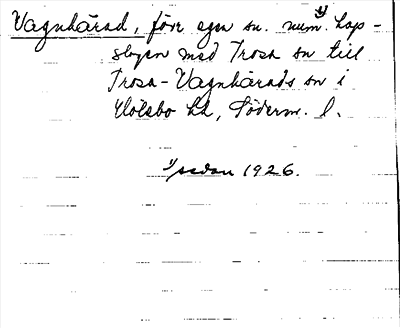 Vagnhärad, förr egen sn. num. 1) hop-
slagen med Trosa sn till
Trosa-Vagnhärads sn i
Hölebo hd, Söderm. l.
1) sedan 1926.